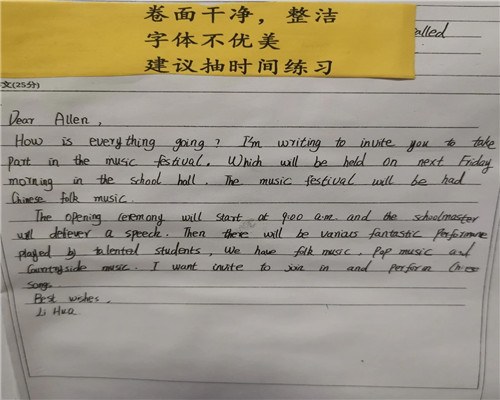 卷面干净，整洁
字体不优美
建议抽时间练习
alled
文(25分)
Dear Allen,
How is everything going? I'm writing to invite you to take
part in the music festival. Which will be held on next Friday
morning in the school hall. The music festival will be had
Chinese folk music.
The opening ceremony will start at 9:00 a.m. and the schoolmaster
will defever a speech. Then there will be variars fantastic performane
played by talentral students, We have folk music, Pop music and
Countryside music. I want invite to join in and perform Chinese
songs.
Best wishes,
Li Hua.